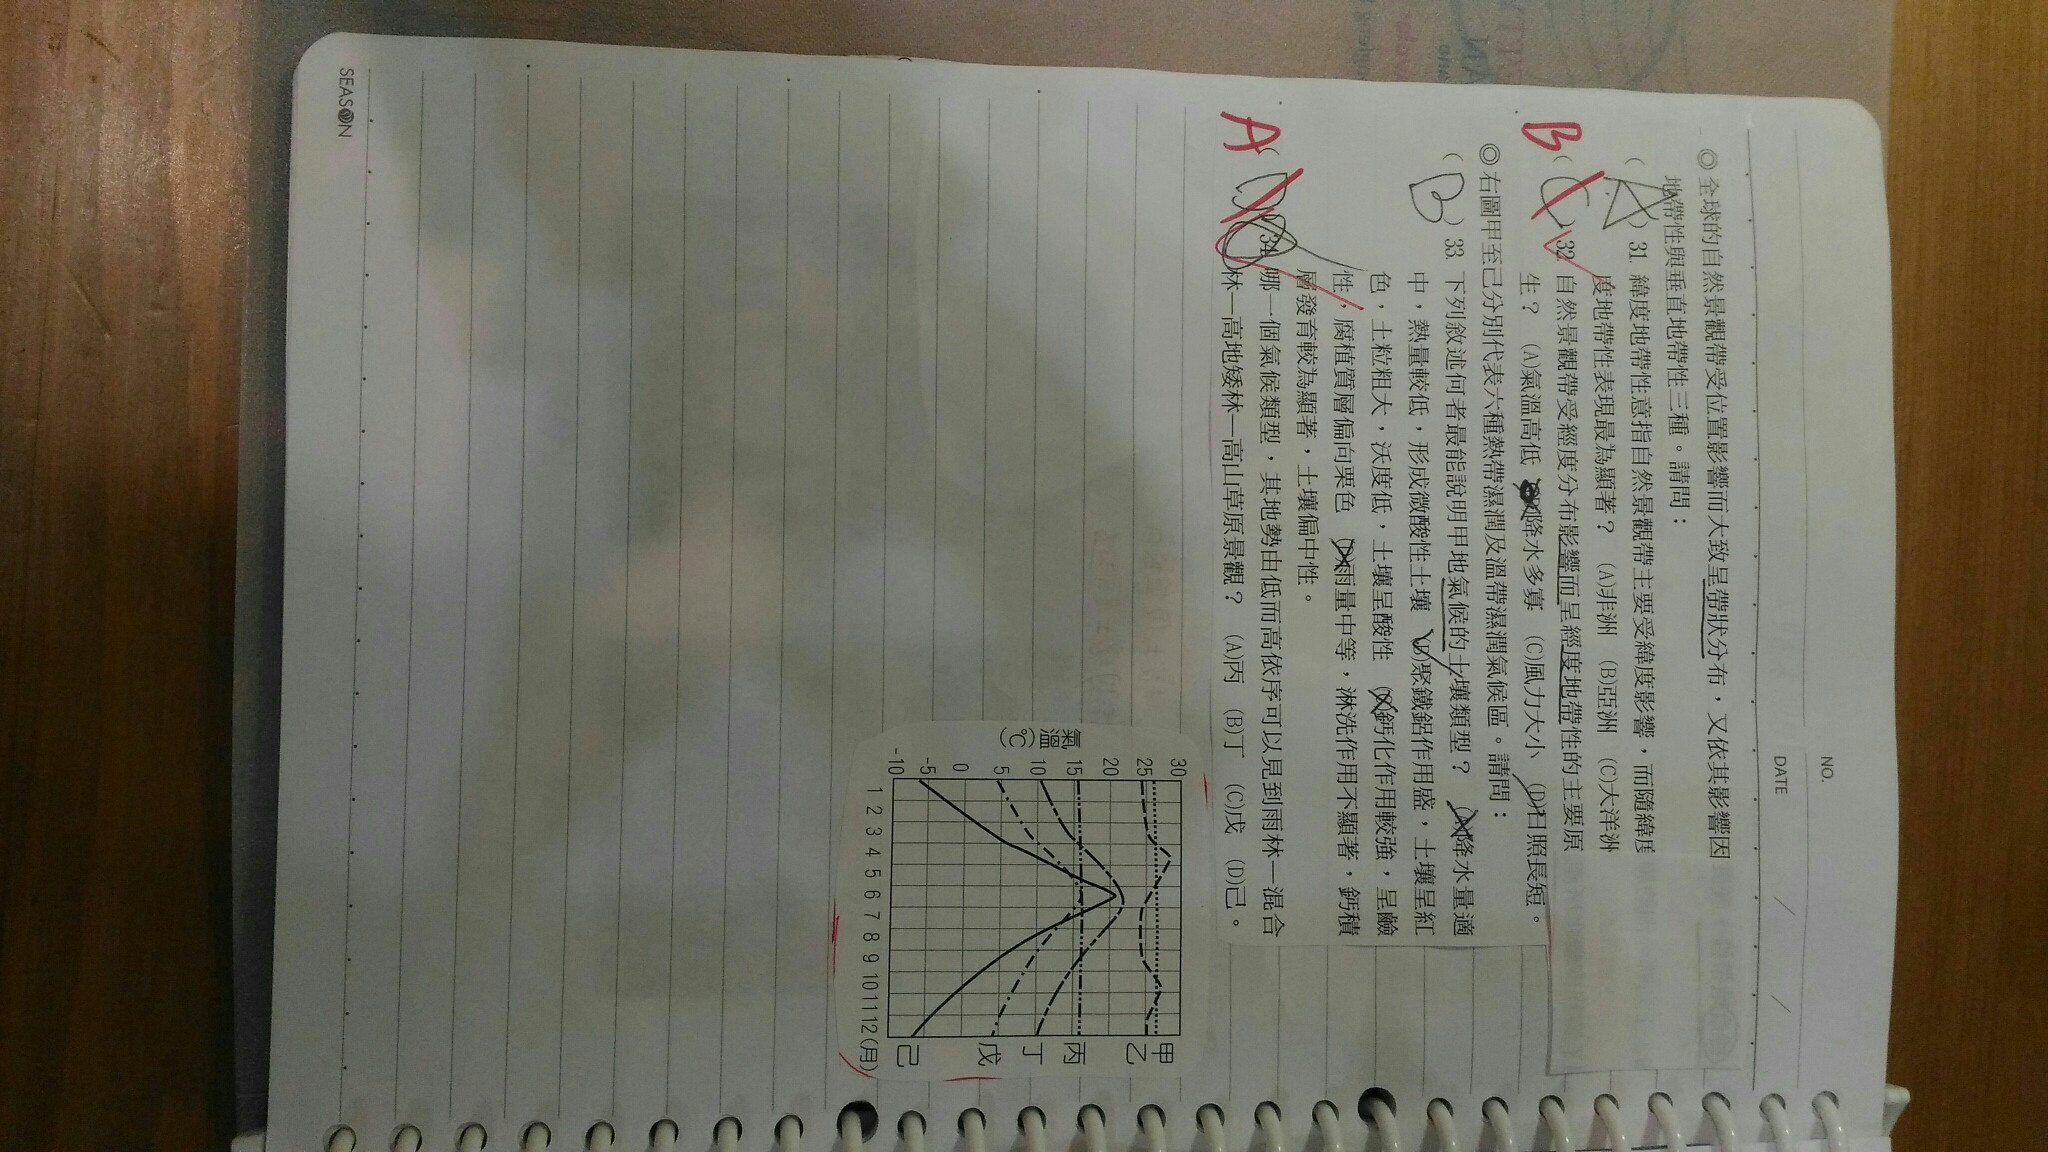 NO.
DATE / /
◎全球的自然景觀帶受位置影響而大致呈帶狀分布,又依其影響因
地帶性與垂直地帶性三種。請問:
(A) 31. 緯度地帶性意指自然景觀帶主要受緯度影響,而隨緯度
度地帶性表現最為顯著? (A)非洲 (B)亞洲 (C)大洋洲
B (C) 32. 自然景觀帶受經度分布影響而呈經度地帶性的主要原
生? (A)氣溫高低 降水多寡 (C)風力大小 (D)日照長短。
◎右圖甲至己分別代表六種熱帶濕潤及溫帶濕潤氣候區。請問:
(B) 33. 下列敘述何者最能說明甲地氣候的土壤類型? (A)降水量適
中,熱量較低,形成微酸性土壤 (B)聚鐵鋁作用盛,土壤呈紅
色,土粒粗大,沃度低,土壤呈酸性 (C)鈣化作用較強,呈鹼
性,腐植質層偏向栗色 (D)雨量中等,淋洗作用不顯著,鈣積
層發育較為顯著,土壤偏中性。
A ( ) 34. 哪一個氣候類型,其地勢由低而高依序可以見到雨林—混合
林—高地矮林—高山草原景觀? (A)丙 (B)丁 (C)戊 (D)己。
氣溫(℃)
30
25
20
15
10
5
0
-5
-10
1 2 3 4 5 6 7 8 9 10 11 12(月)
甲
乙
丙
丁
戊
己
SEASON